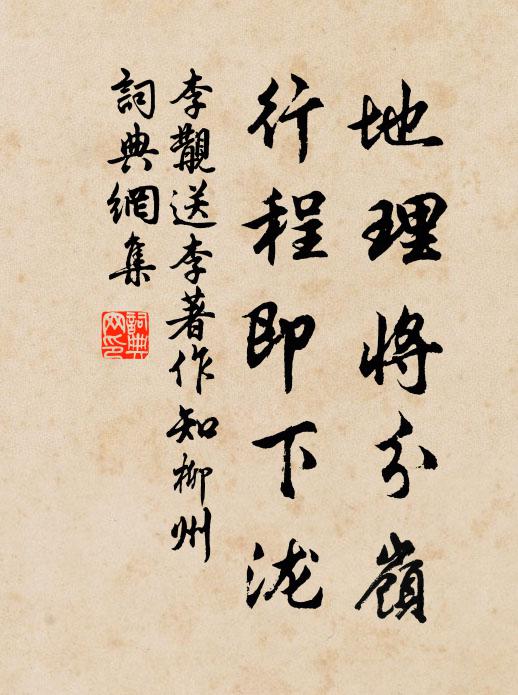 地理將分嶺
行程即下泷
李覯送李著作知柳州
詞典網集
詞典網印